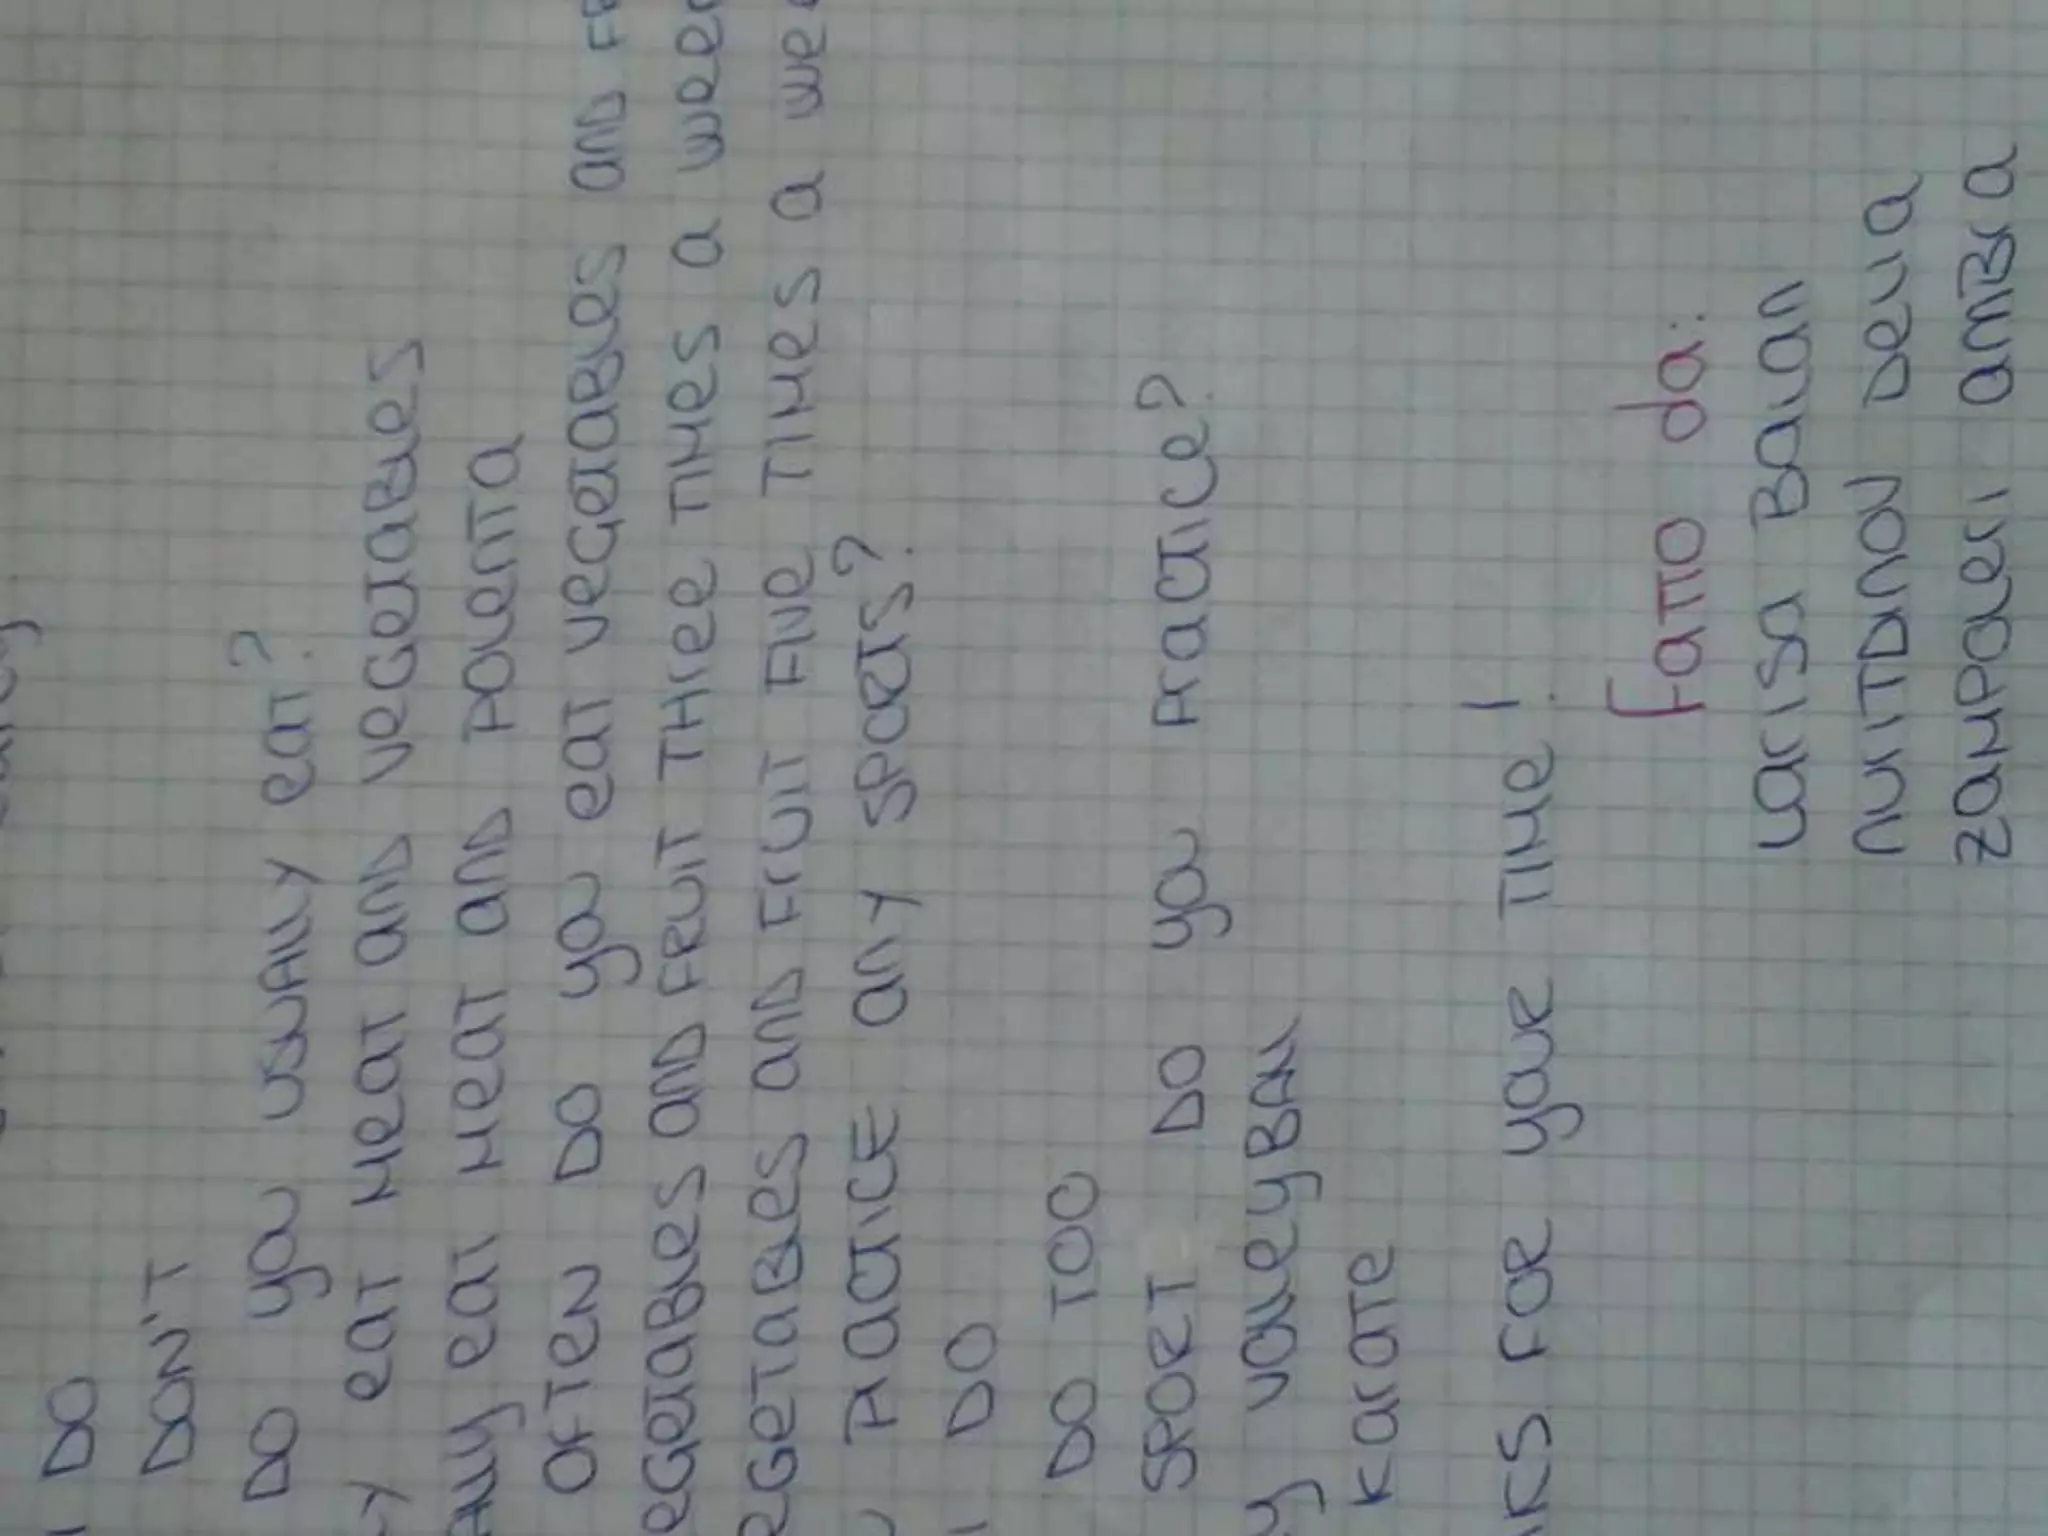 I DO
DON'T
DO you USUALLY eAT?
Y eAT MeAT AND VeGeTABLeS
ALLy eAT MeAT AND POLeNTA
OFTeN DO you eAT VeGeTABLeS AND FR
eGeTABLeS AND FRUIT THree TIMeS A Wee
eGeTABLeS AND FRUIT FIVe TIMeS A We
PrACTICE ANY SPORTS?
I DO
DO TOO
SPORT DO you PrACTICe?
y VOLLeyBALL
KArATe
KS FOR youR TIMe!
FATTO da:
LArISA BALAN
DeLIA
ZAMPOLerI AMBrA